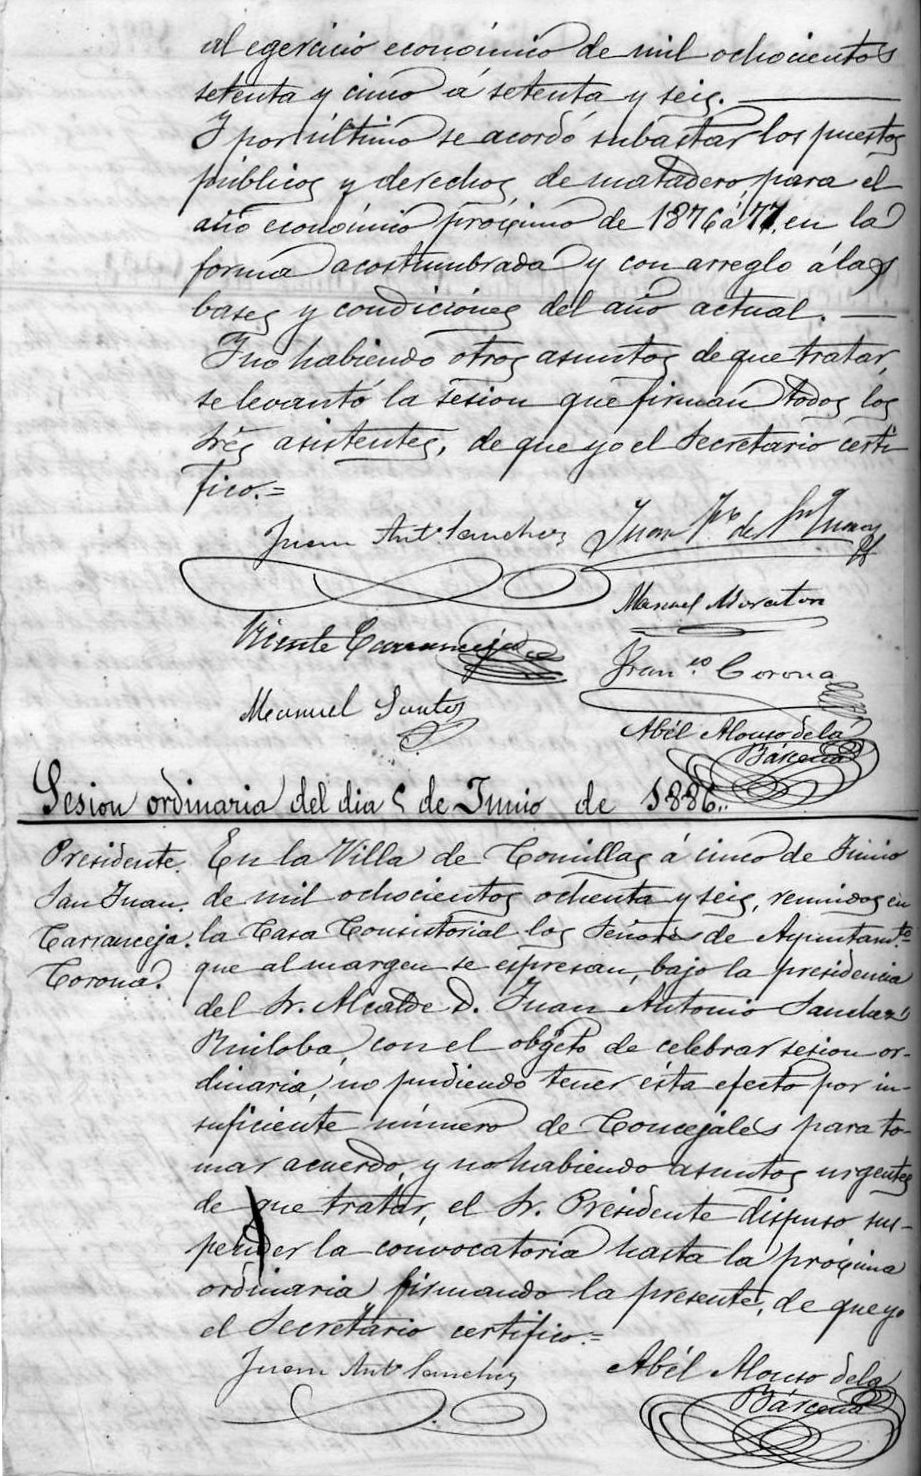 al egercicio económico de mil ochocientos
setenta y cinco á setenta y seis.
Y por último se acordó subastar los puestos
públicos y derechos de matadero para el
año económico próximo de 1876 á 77, en la
forma acostumbrada y con arreglo á las
bases y condiciones del año actual.
Y no habiendo otros asuntos de que tratar,
se levantó la sesion que firman todos los
Sres asistentes, de que yo el Secretario certi
fico.=
Juan Antº Sanchez Juan de
Manuel Moraton
Vicente Carranceja
Franco Corona
Manuel Santos
Abél Alonso de la
Bárcena
Sesion ordinaria del dia 5 de Junio de 1886.
Presidente.
San Juan.
Carranceja.
Corona.
En la Villa de Comillas á cinco de Junio
de mil ochocientos ochenta y seis, reunidos en
la Casa Consistorial los Señores de Ayuntamto
que al margen se espresan, bajo la presidencia
del Sr. Alcalde D. Juan Antonio Sanchez
Ruiloba, con el objeto de celebrar sesion or-
dinaria, no pudiendo tener ésta efecto por in-
suficiente número de Concejales para to-
mar acuerdo, y no habiendo asuntos urgentes
de que tratar, el Sr. Presidente dispuso sus-
pender la convocatoria hasta la próxima
ordinaria firmando la presente, de que yo
el Secretario certifico.=
Juan Antº Sanchez
Abél Alonso de la
Bárcena